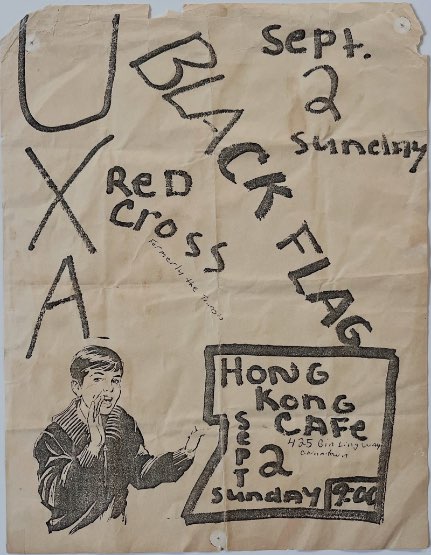 UXA
BLACK FLAG
Sept.
2
Sunday
RED
CROSS
formerly the Tourists
HONG
KONG
CAFE
425 Gin Ling Way
Chinatown
SEPT
2
Sunday 9:00